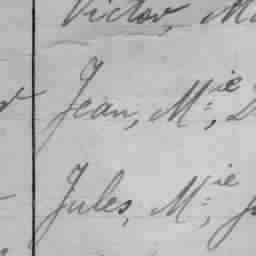 Victor, M
Jean, M.ie,
Jules, M.ie,